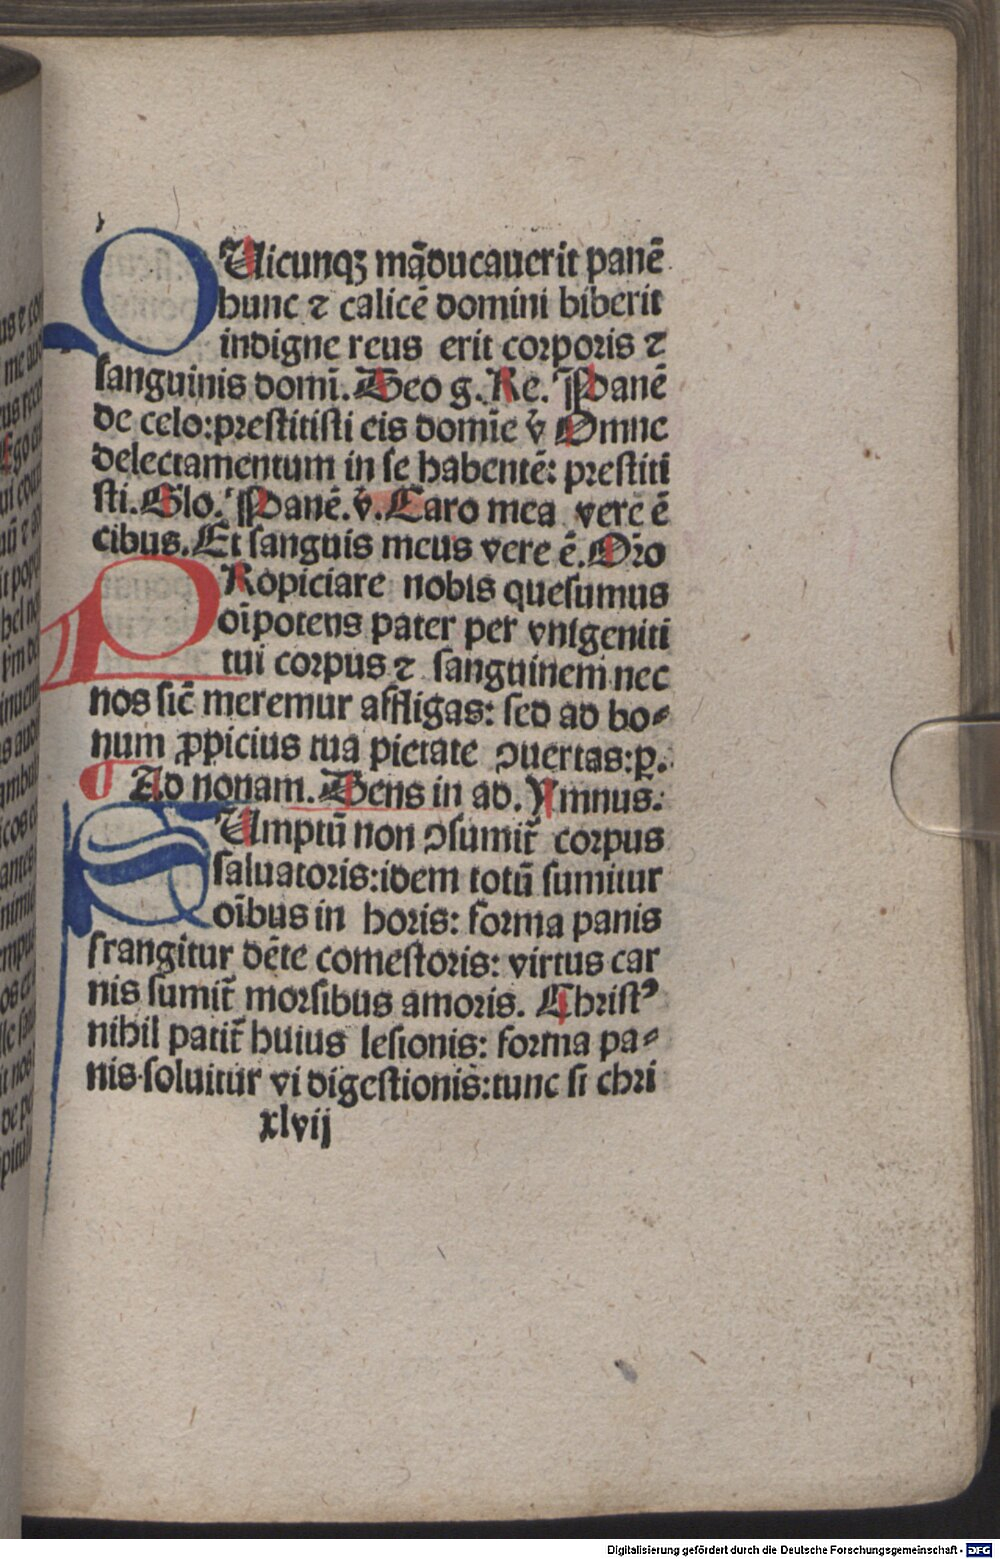 QUicunqꝫ mãducauerit panẽ
hunc ⁊ calicẽ domini biberit
indigne reus erit corporis ⁊
sanguinis domĩ. Deo g. Re. Panẽ
de celo: prestitisti eis domĩe v̄ Omne
delectamentum in se habentẽ: prestiti
sti. Glo. Panẽ. v̄. Caro mea vere ẽ
cibus. Et sanguis meus vere ẽ. Or̄o
PRopiciare nobis quesumus
oĩpotens pater per vnigeniti
tui corpus ⁊ sanguinem nec
nos sic̄ meremur affligas: sed ad bo⸗
num ꝓpicius tua pietate ↄuertas: p̱.
Ad nonam. Deus in ad. Ymnus.
SUmptũ non ↄsumit̃ corpus
saluatoris: idem totũ sumitur
oĩbus in horis: forma panis
frangitur dẽte comestoris: virtus car
nis sumit̃ morsibus amoris. Christꝰ
nihil patit̃ huius lesionis: forma pa⸗
nis soluitur vi digestionis: tunc si chri
xlvij
Digitalisierung gefördert durch die Deutsche Forschungsgemeinschaft - DFG